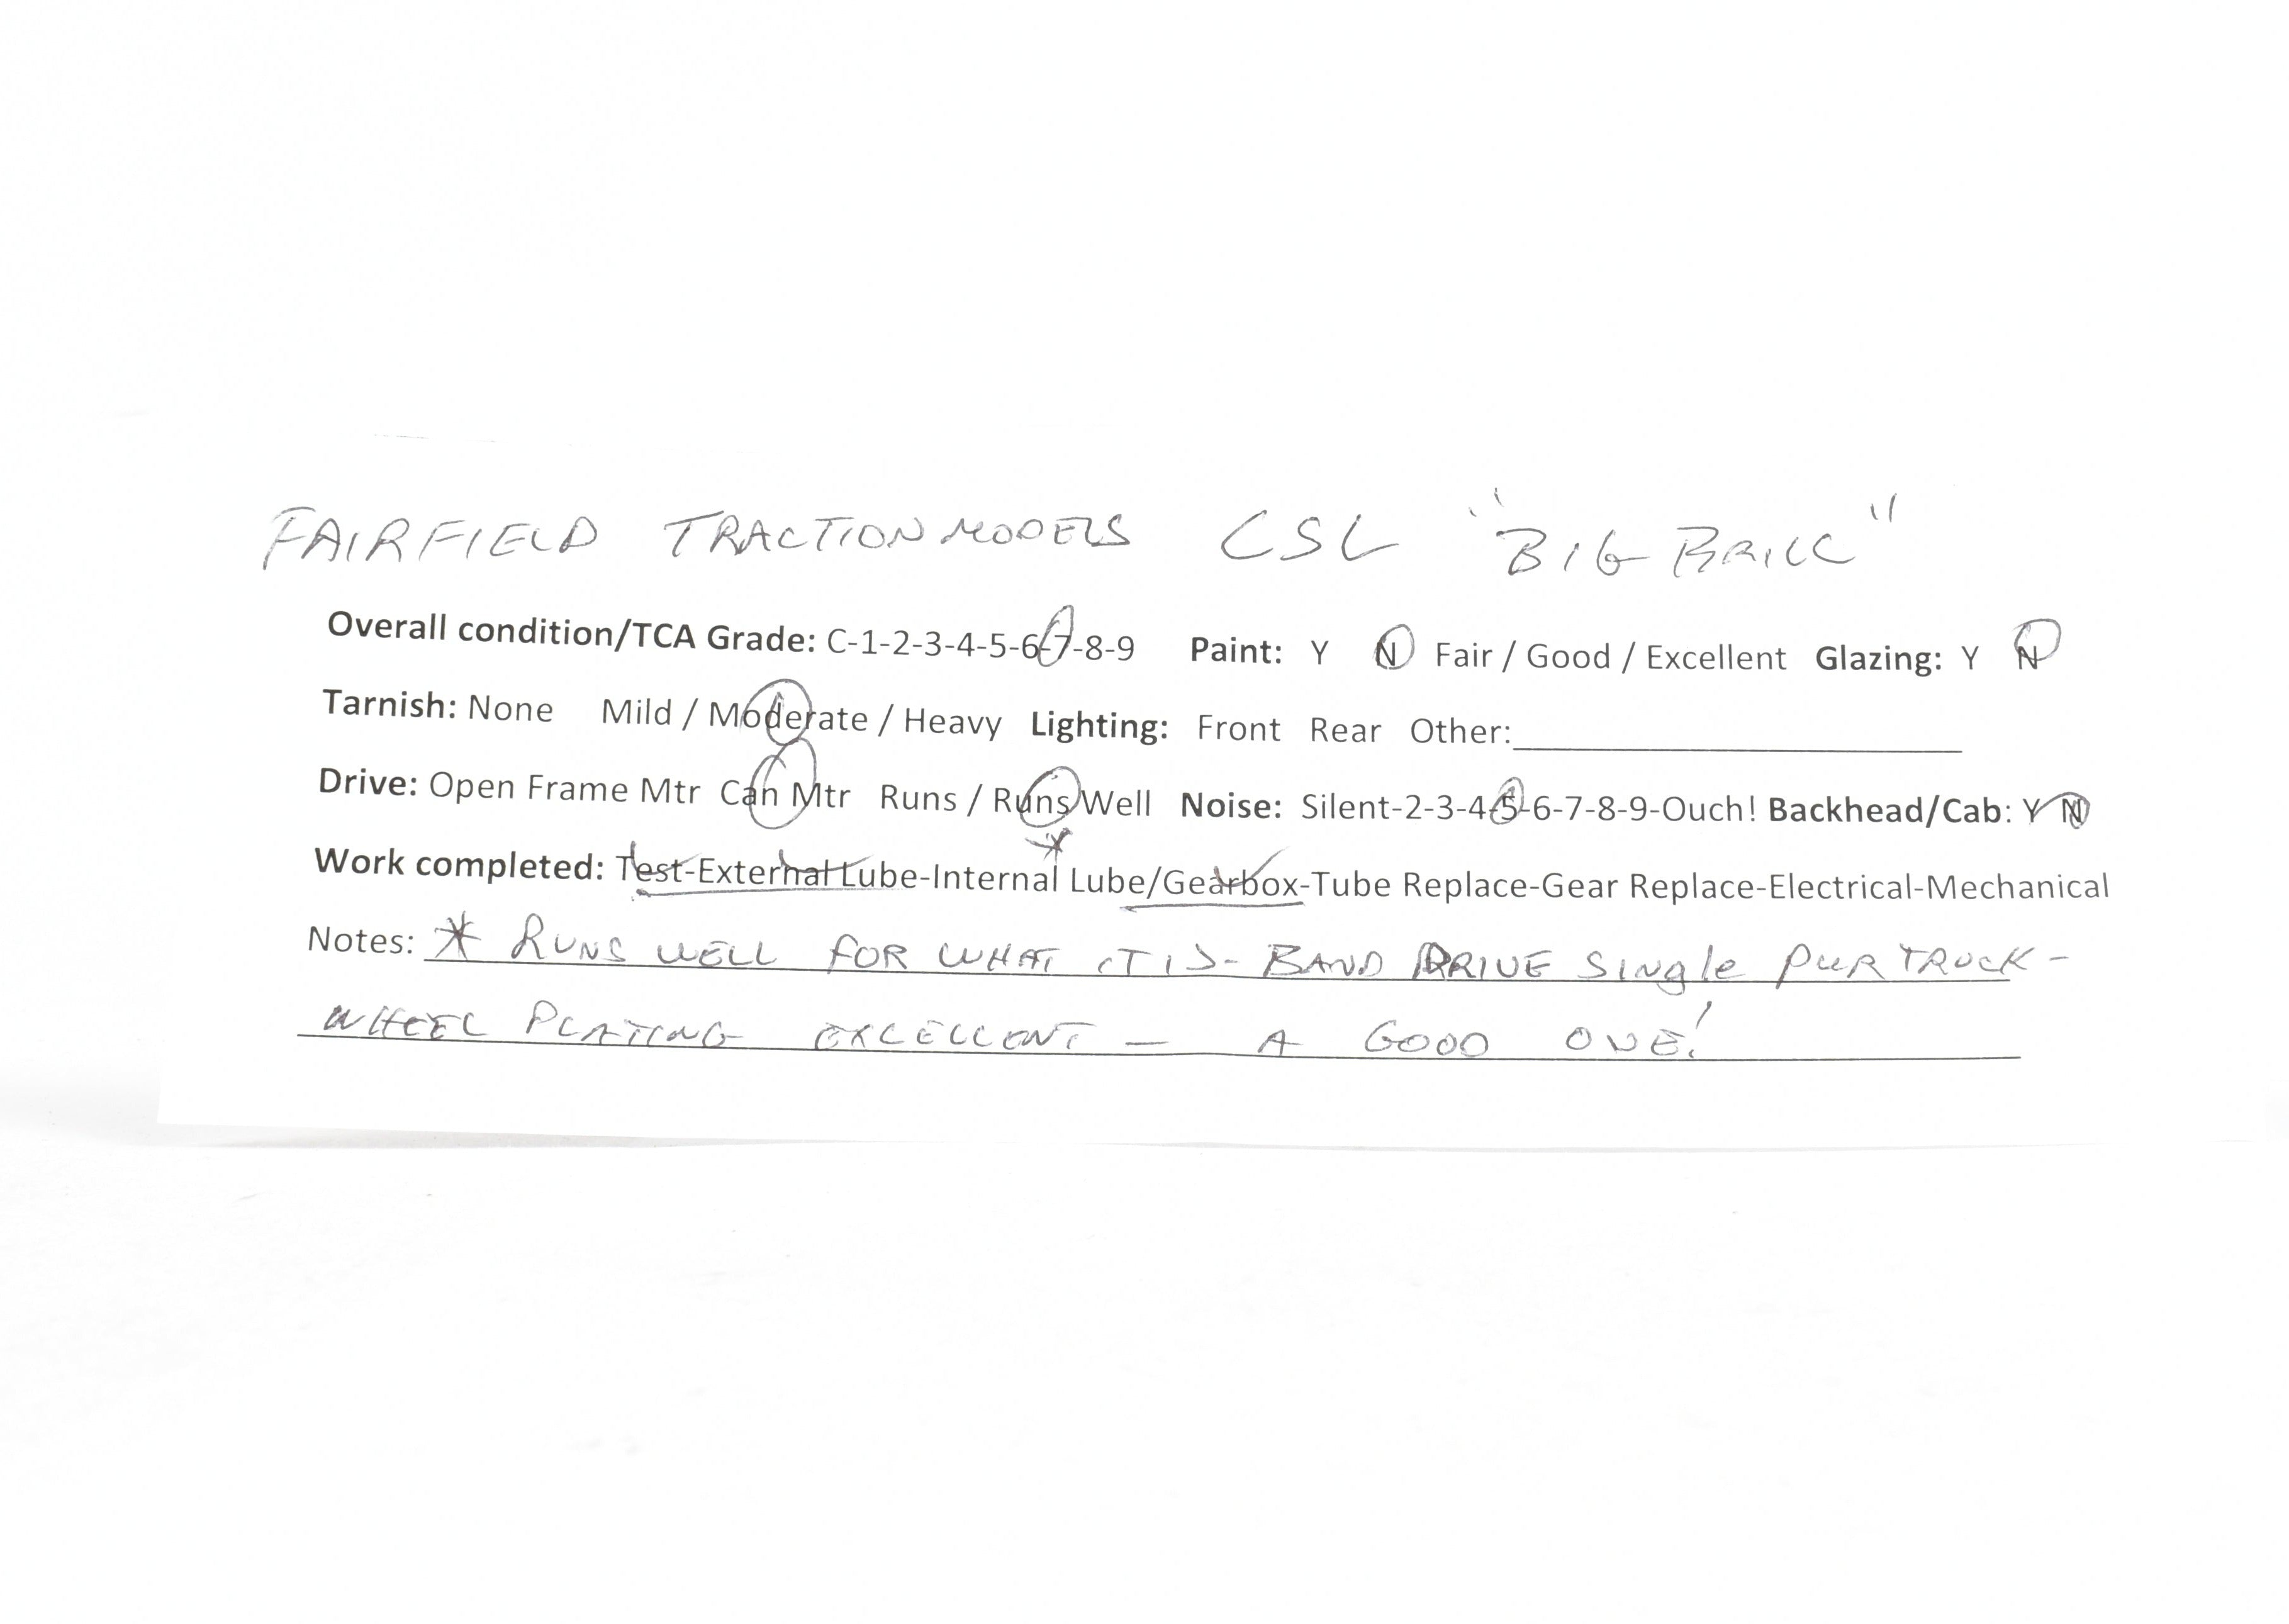 FAIRFIELD TRACTION MODELS CSL "BIG BRILL"
Overall condition/TCA Grade: C-1-2-3-4-5-6-7-8-9 Paint: Y N Fair / Good / Excellent Glazing: Y N
Tarnish: None Mild / Moderate / Heavy Lighting: Front Rear Other:
Drive: Open Frame Mtr Can Mtr Runs / Runs Well Noise: Silent-2-3-4-5-6-7-8-9-Ouch! Backhead/Cab: Y N
*
Work completed: Test-External Lube-Internal Lube/Gearbox-Tube Replace-Gear Replace-Electrical-Mechanical
Notes: * RUNS WELL FOR WHAT IT IS - BAND DRIVE Single PWR TRUCK -
WHEEL PLATING EXCELLENT — A GOOD ONE!